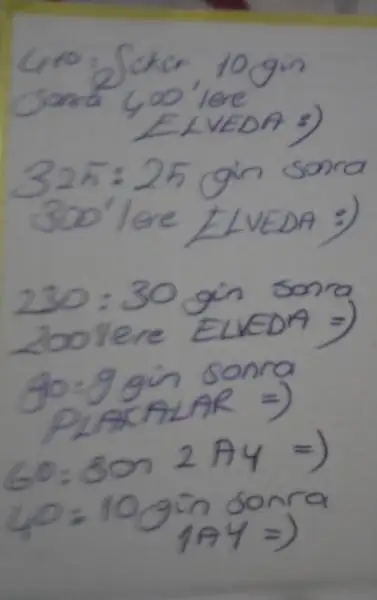 410: Şeker 10 gün
sonra 400'lere
ELVEDA :)
325: 25 gün sonra
300'lere ELVEDA :)
230: 30 gün sonra
200'lere ELVEDA =)
90: 9 gün sonra
PLAKALAR =)
60: Son 2 AY =)
40: 10 gün sonra
1AY =)